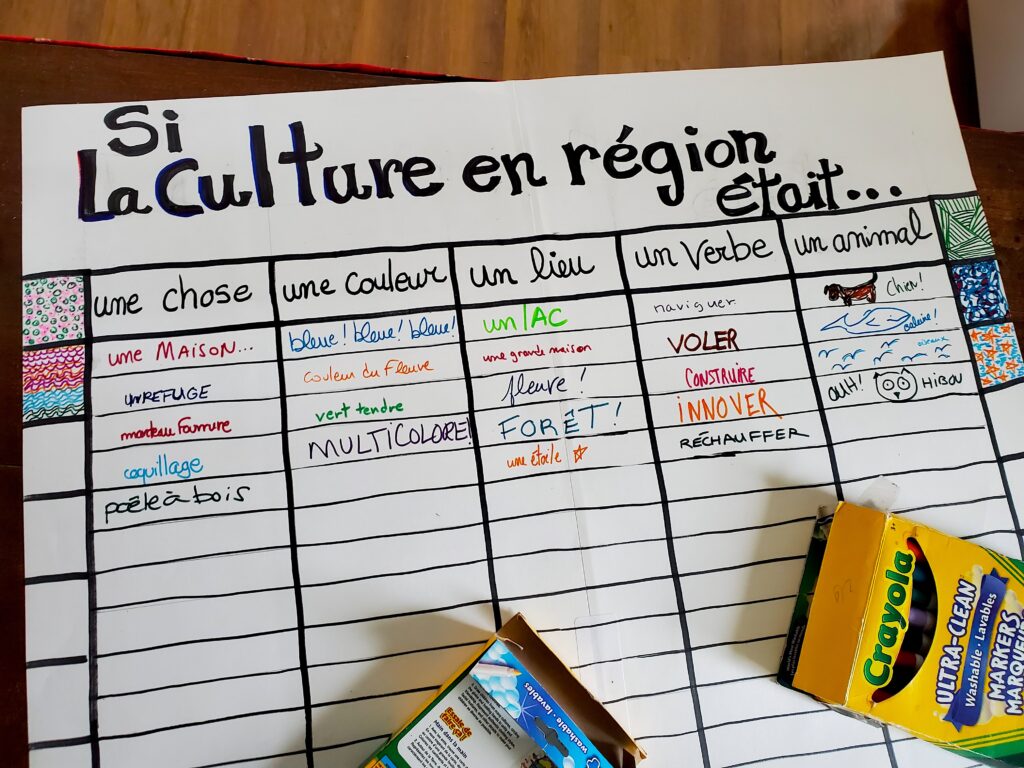 Si
La Culture en région
était...
une chose
une couleur
un lieu
un verbe
un animal
une MAISON...
UN REFUGE
manteau fourrure
coquillage
poêle à bois
bleue! bleue! bleue!
couleur du Fleuve
vert tendre
MULTICOLORE!
un LAC
une grande maison
fleuve!
FORÊT!
une étoile
naviguer
VOLER
CONSTRUIRE
INNOVER
RÉCHAUFFER
chien!
baleine!
oiseaux
OUH! HIBOU
Crayola
ULTRA-CLEAN
Washable · Lavables
MARKERS
washable · lavables